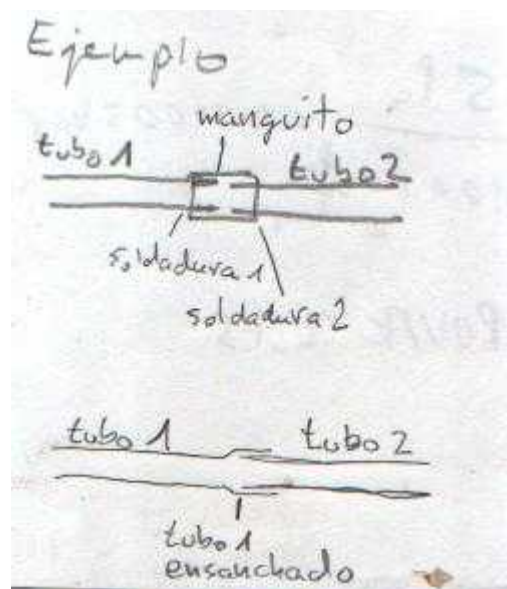 Ejemplo
manguito
tubo 1
tubo 2
soldadura 1
soldadura 2
tubo 1
tubo 2
tubo 1
ensanchado